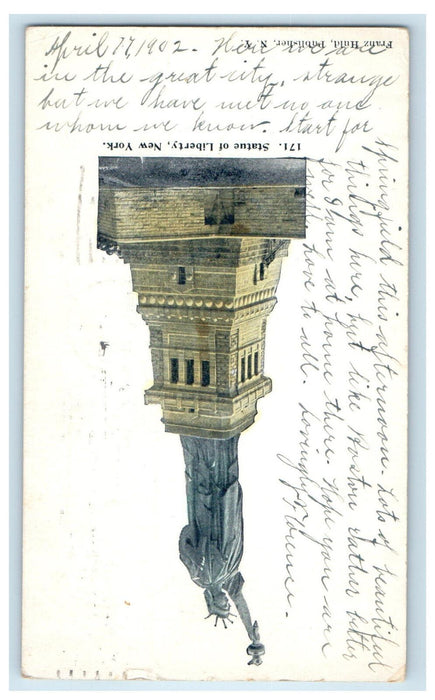 Franz Huld, Publisher, N. Y.
171. Statue of Liberty, New York.
April 17, 1902. Here we are
in the great city, strange
but we have met no one
whom we know. Start for
Springfield this afternoon. Lots of beautiful
things here, but like Boston rather better
for I am at home there. Hope you are
well. Love to all. Lovingly Florence.